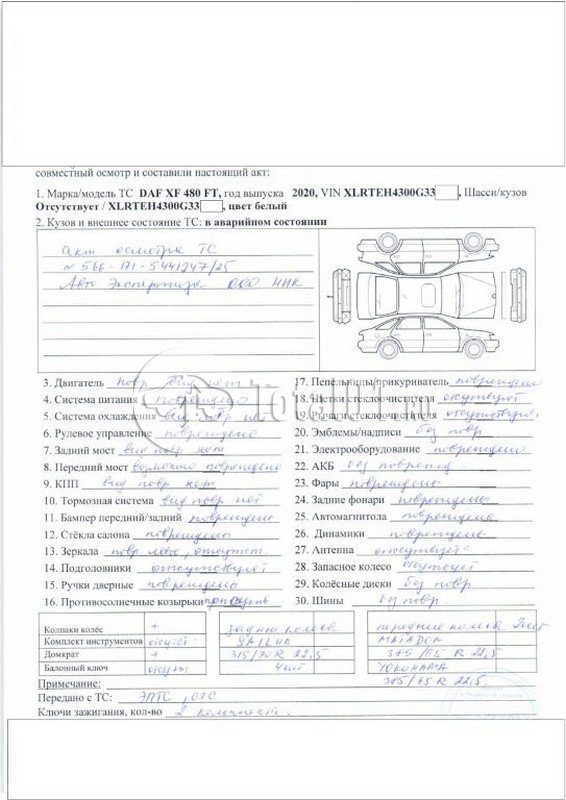 совместный осмотр и составили настоящий акт:
1. Марка/модель ТС DAF XF 480 FT, год выпуска 2020, VIN XLRTEH4300G33 , Шасси/кузов
Отсутствует / XLRTEH4300G33 , цвет белый
2. Кузов и внешнее состояние ТС: в аварийном состоянии
Акт осмотра ТС
№ 566-171-5441247/25
Авто Экспертиза ООО НИК
3. Двигатель повр вид нет
4. Система питания повреждено
5. Система охлаждения вид повр нет
6. Рулевое управление повреждено
7. Задний мост вид повр нет
8. Передний мост возможно повреждено
9. КПП вид повр нет
10. Тормозная система вид повр нет
11. Бампер передний/задний повреждены
12. Стёкла салона повреждены
13. Зеркала повр левое, отсутст
14. Подголовники отсутствуют
15. Ручки дверные повреждены
16. Противосолнечные козырьки
17. Пепельницы/прикуриватель повреждены
18. Щетки стеклоочистителя отсутствуют
19. Рычаги стеклоочистителя отсутствуют
20. Эмблемы/надписи без повр
21. Электрооборудование повреждено
22. АКБ без
23. Фары повреждены
24. Задние фонари повреждены
25. Автомагнитола повреждена
26. Динамики повреждены
27. Антенна отсутствует
28. Запасное колесо отсутсует
29. Колёсные диски без повр
30. Шины без повр.
Колпаки колёс + задние колеса передние колеса 2шт
Комплект инструментов отсутст SAILUN МАТАДОР
Домкрат + 315/70 R 22,5 385/65 R 22,5
Балонный ключ отсутст 4шт YOKOHAMA
Примечание: 385/65 R 22.5
Передано с ТС: ЭПТС, СТС
Ключи зажигания, кол-во 2 комплект